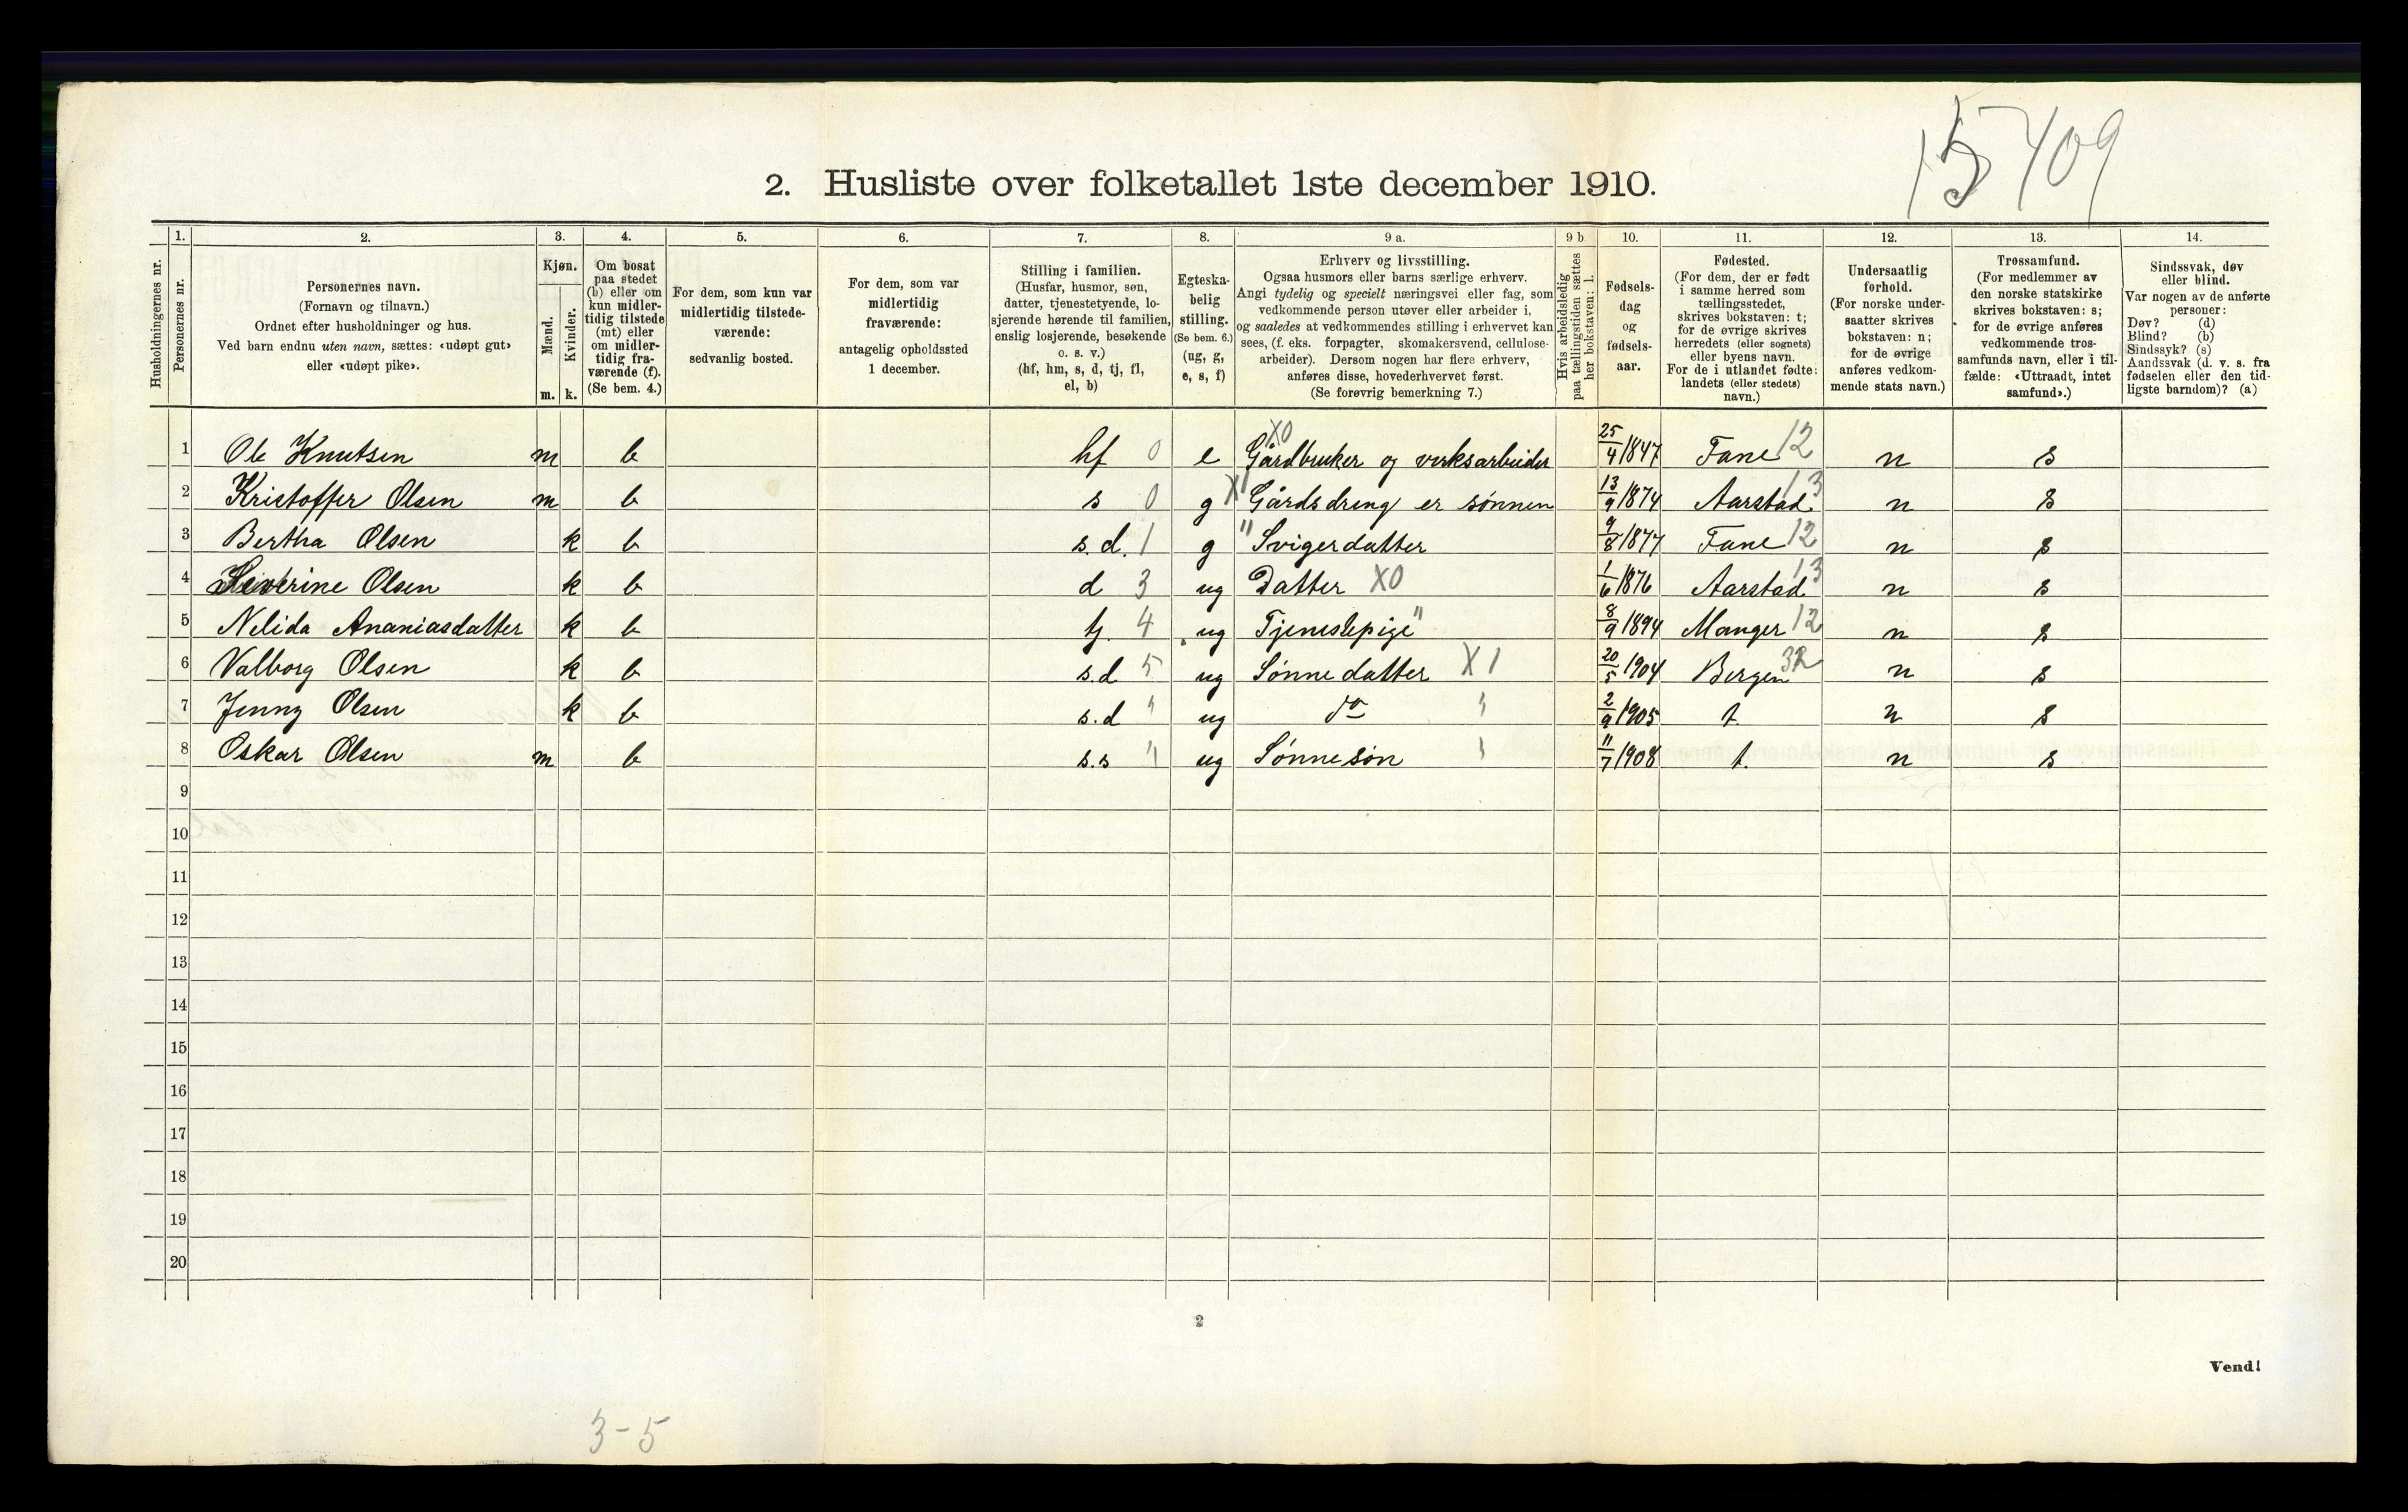 15 409
2. Husliste over folketallet 1ste december 1910.
Husholdningernes nr.
1.
Personernes nr.
2.
Personernes navn.
(Fornavn og tilnavn.)
Ordnet efter husholdninger og hus.
Ved barn endnu uten navn, sættes: «udøpt gut»
eller «udøpt pike».
3.
Kjøn.
Mænd.
Kvinder.
m. k.
4.
Om bosat
paa stedet
(b) eller om
kun midler-
tidig tilstede
(mt) eller
om midler-
tidig fra-
værende (f).
(Se bem. 4.)
5.
For dem, som kun var
midlertidig tilstede-
værende:
sedvanlig bosted.
6.
For dem, som var
midlertidig
fraværende:
antagelig opholdssted
1 december.
7.
Stilling i familien.
(Husfar, husmor, søn,
datter, tjenestetyende, lo-
sjerende hørende til familien,
enslig losjerende, besøkende
o. s. v.)
(hf, hm, s, d, tj, fl,
el, b)
8.
Egteska-
belig
stilling.
(Se bem. 6.)
(ug, g,
e, s, f)
9 a.
Erhverv og livsstilling.
Ogsaa husmors eller barns særlige erhverv.
Angi tydelig og specielt næringsvei eller fag, som
vedkommende person utøver eller arbeider i,
og saaledes at vedkommendes stilling i erhvervet kan
sees, (f. eks. forpagter, skomakersvend, cellulose-
arbeider). Dersom nogen har flere erhverv,
anføres disse, hovederhvervet først.
(Se forøvrig bemerkning 7.)
9 b
Hvis arbeidsledig
paa tællingstiden sættes
her bokstaven: l.
10.
Fødsels-
dag
og
fødsels-
aar.
11.
Fødested.
(For dem, der er født
i samme herred som
tællingsstedet,
skrives bokstaven: t;
for de øvrige skrives
herredets (eller sognets)
eller byens navn.
For de i utlandet fødte:
landets (eller stedets)
navn.)
12.
Undersaatlig
forhold.
(For norske under-
saatter skrives
bokstaven: n;
for de øvrige
anføres vedkom-
mende stats navn.)
13.
Trossamfund.
(For medlemmer av
den norske statskirke
skrives bokstaven: s;
for de øvrige anføres
vedkommende tros-
samfunds navn, eller i til-
fælde: «Uttraadt, intet
samfund».)
14.
Sindssvak, døv
eller blind.
Var nogen av de anførte
personer:
Døv? (d)
Blind? (b)
Sindssyk? (s)
Aandssvak (d. v. s. fra
fødselen eller den tid-
ligste barndom)? (a)
1 Ole Knutsen m b hf 0 e X0 Gårdbruker og verksarbeider 25/4 1847 Fane 12 n s
2 Kristoffer Olsen m b s 0 g X1 Gårdsdreng er sønnen 13/9 1874 Aarstad 13 n s
3 Bertha Olsen k b s.d. 1 g " Svigerdatter 9/8 1877 Fane 12 n s
4 Severine Olsen k b d 3 ug Datter X0 1/6 1876 Aarstad 13 n s
5 Nelida Ananiasdatter k b tj. 4 ug Tjenestepige " 8/9 1894 Manger 12 n s
6 Valborg Olsen k b s.d 5 ug Sønnedatter X1 20/5 1904 Bergen 32 n s
7 Jenny Olsen k b s.d " ug do " 2/9 1905 t. n s
8 Oskar Olsen m b s.s " ug Sønnesøn " 11/7 1908 t. n s
9
10
11
12
13
14
15
16
17
18
19
20
2
Vend!
3-5